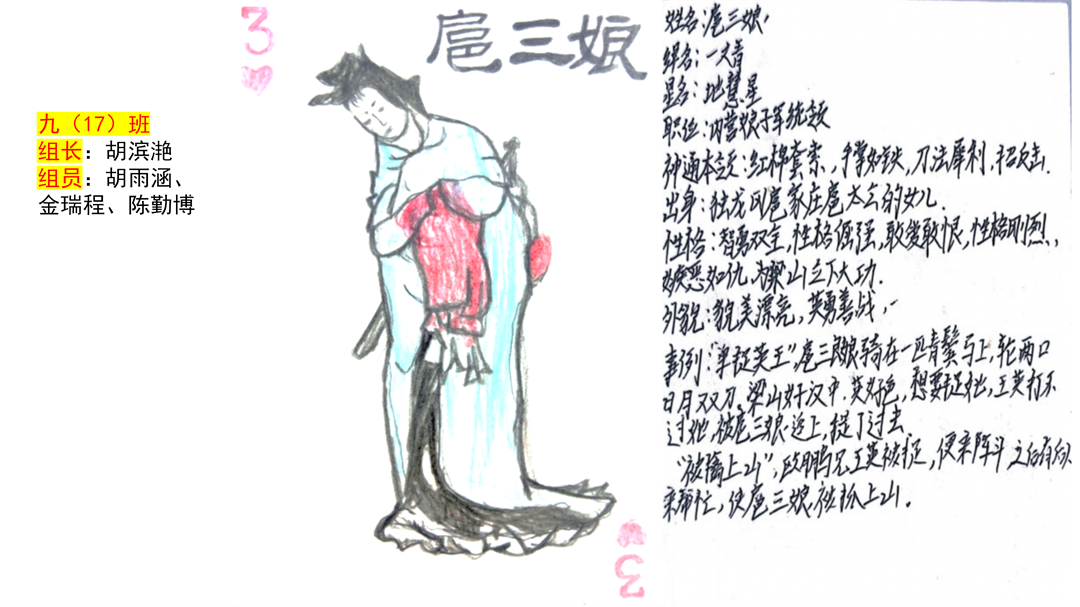 3
扈三娘
九（17）班
组长：胡滨滟
组员：胡雨涵、
金瑞程、陈勤博
姓名：扈三娘，
绰名：一丈青
星名：地慧星
职位：内营娘子军统领
神通本领：红棉套索，手掌如铁，刀法犀利，招反击.
出身：独龙冈扈家庄扈太公的女儿.
性格：智勇双全，性格倔强，敢爱敢恨，性格刚烈，
嫉恶如仇，为梁山立下大功.
外貌：貌美漂亮，英勇善战，
事例：“单捉英王”，扈三娘骑在一匹青鬃马上，轮两口
日月双刀，梁山好汉中.英好色，想要捉她，王英打不
过她，被扈三娘追上，捉了过去.
“被擒上山”，欧鹏见王英被捉，便来阵斗之后有
来帮忙，使扈三娘被抓上山.
3